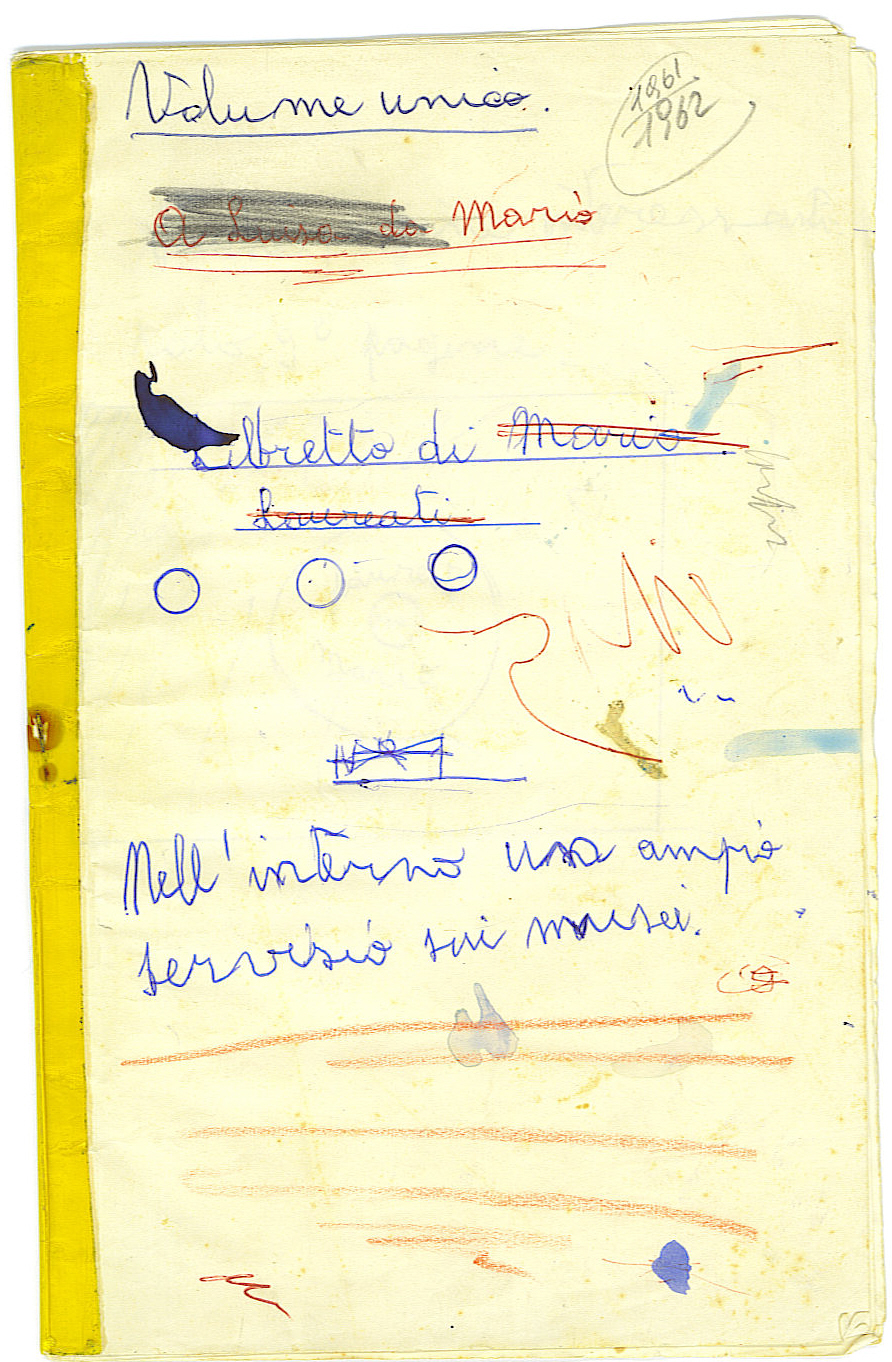 Volume unico.
1961
1962
A Luisa da Mario
Libretto di Mario
Laureati
Nell'interno un ampio
servizio sui musei.